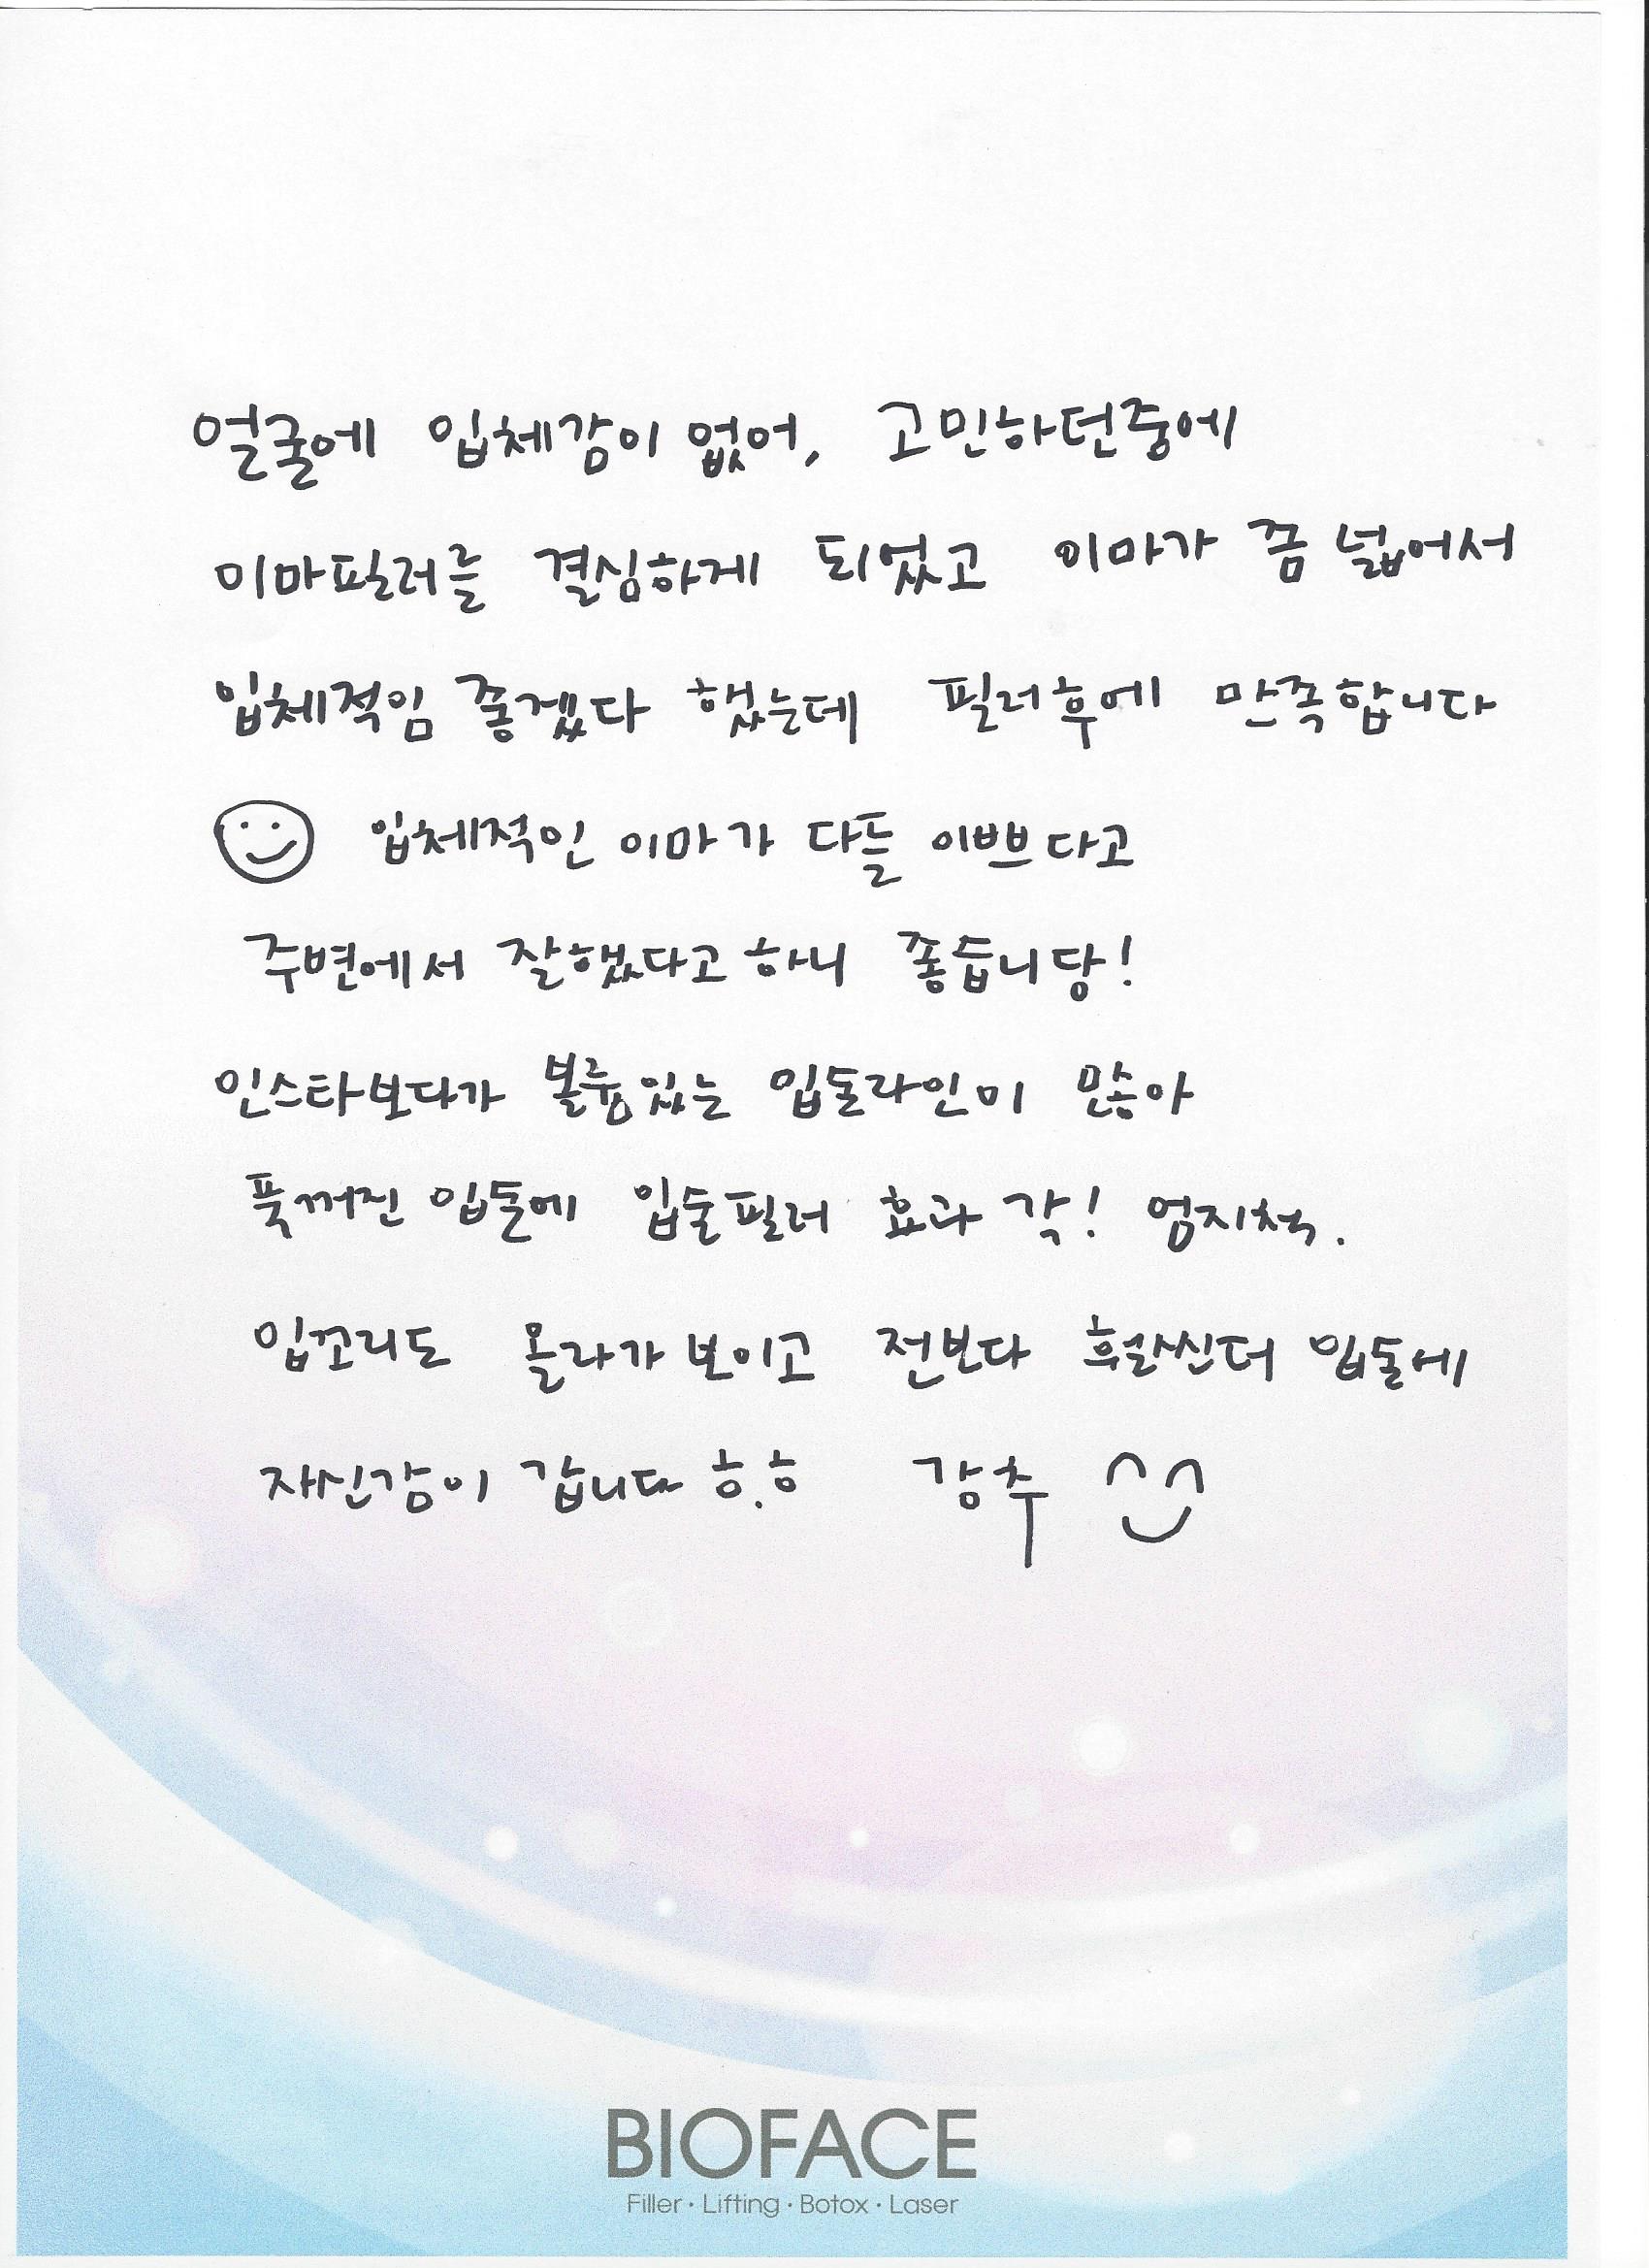 얼굴에 입체감이 없어, 고민하던중에
이마필러를 결심하게 되었고 이마가 쫌 넓어서
입체적임 좋겠다 했는데 필러후에 만족합니다
입체적인 이마가 다들 이쁘다고
주변에서 잘했다고 하니 좋습니당!
인스타보다가 볼륨있는 입술라인이 많아
푹꺼진 입술에 입술필러 효과 각! 엄지척.
입꼬리도 올라가 보이고 전보다 훨씬더 입술에
자신감이 갑니다 ㅎ.ㅎ 강추
BIOFACE
Filler · Lifting · Botox · Laser